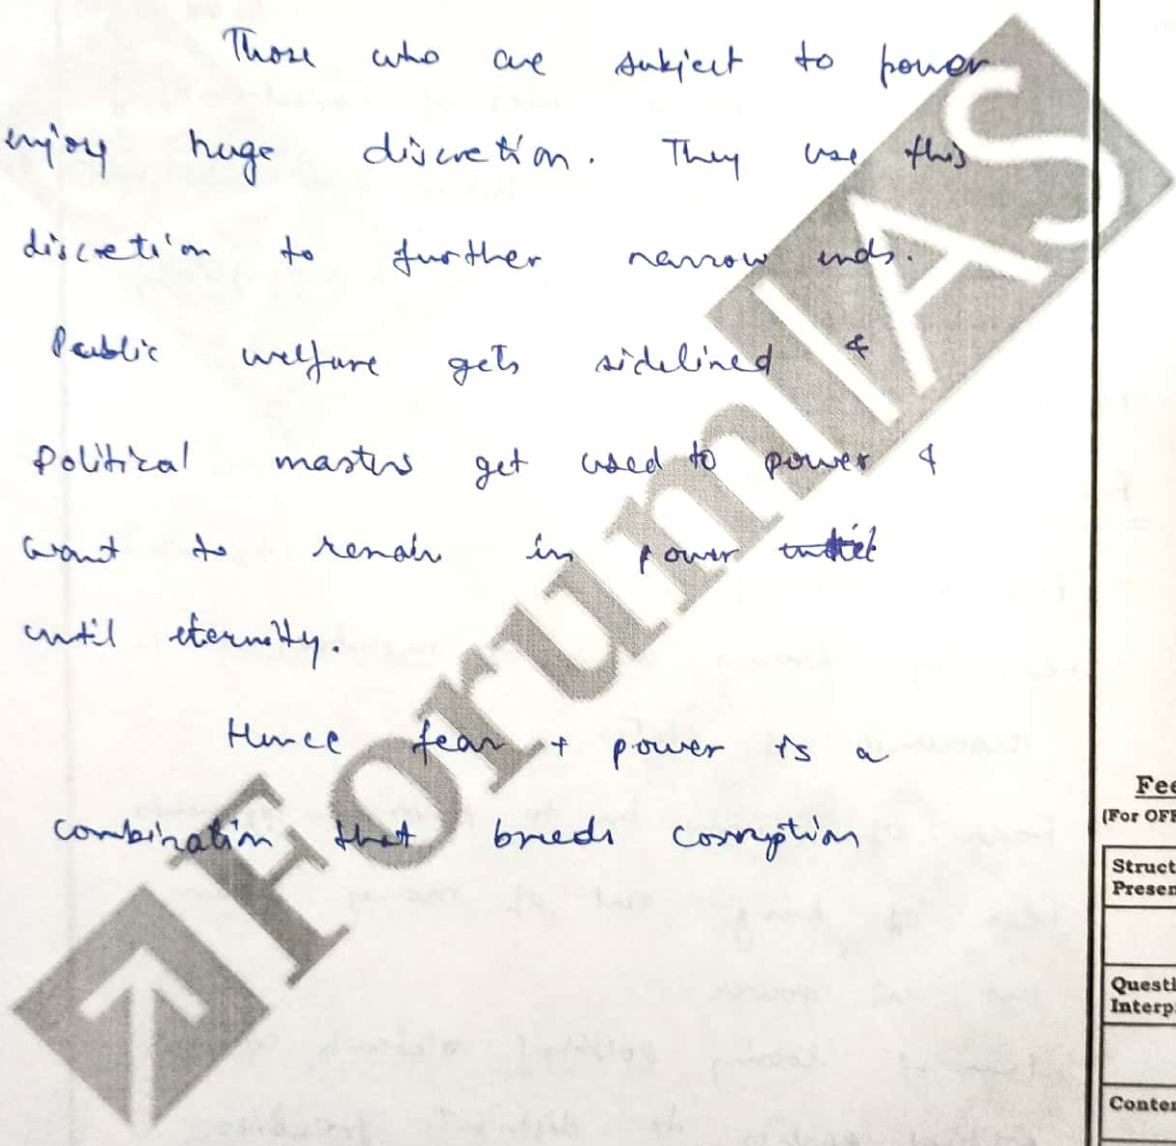 Those who are subject to power
enjoy huge discretion. They use this
discretion to further narrow ends.
Public welfare gets sidelined &
political masters get used to power &
want to remain in power until
until eternity.
Hence fear + power is a
combination that breeds corruption
Forum|AS
Fee
(For OFF
Struct
Presen
Questi
Interp
Conten